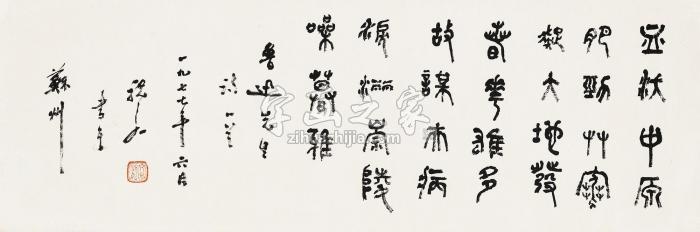 血沃中原
肥勁艸寒
凝大地發
春華雄多
故謀夫病
淚灑崇陵
噪莫雅
魯迅先生
詩一首
一九七七年六月
蘇州
字画之家
zihuazhijia.com